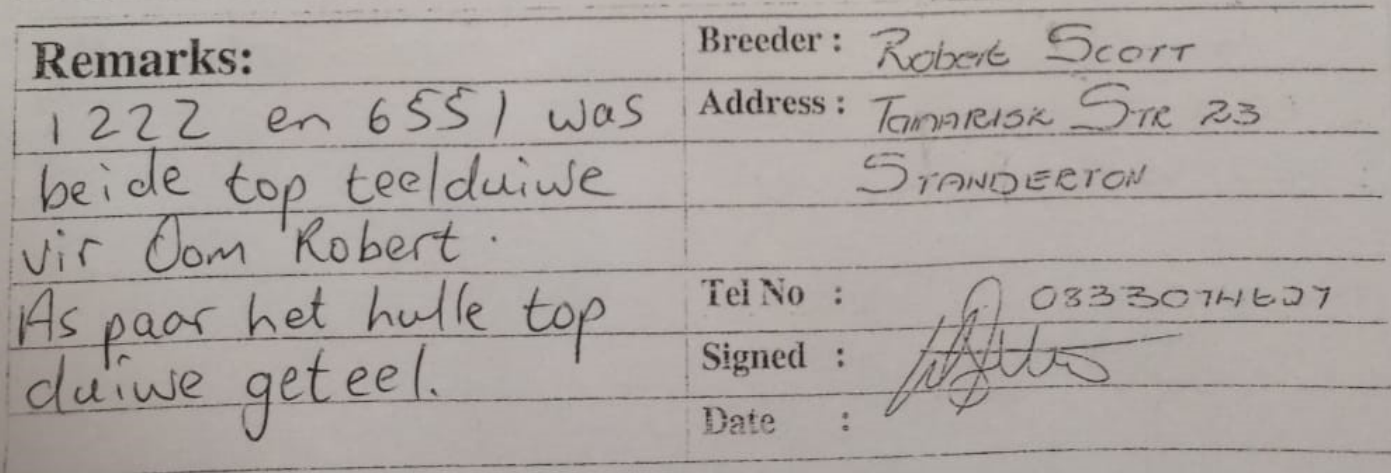 Remarks:
1222 en 6551 was
beide top teelduiwe
vir Oom Robert.
As paar het hulle top
duiwe geteel.
Breeder : Robert Scott
Address : Tamarisk Str 23
Standerton
Tel No :
Signed :
Date :